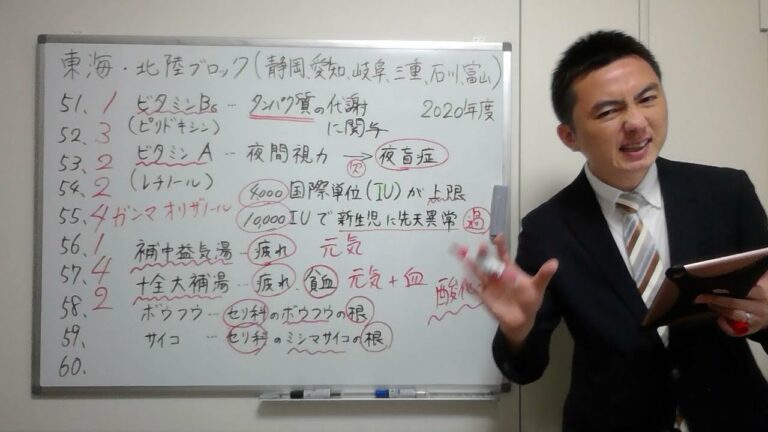 東海・北陸ブロック(静岡、愛知、岐阜、三重、石川、富山)
2020年度
51. 1 ビタミンB6 … タンパク質の代謝に関与
52. 3 (ピリドキシン)
53. 2 ビタミンA … 夜間視力 欠→ 夜盲症
54. 2 (レチノール) 4000国際単位(IU)が上限
55. 4 ガンマオリザノール 10,000IUで新生児に先天異常 過
56. 1 補中益気湯 … 疲れ 元気
57. 4 十全大補湯 … 疲れ、貧血 元気+血
58. 2 ボウフウ … セリ科のボウフウの根
59. サイコ … セリ科のミシマサイコの根
60.
酸化